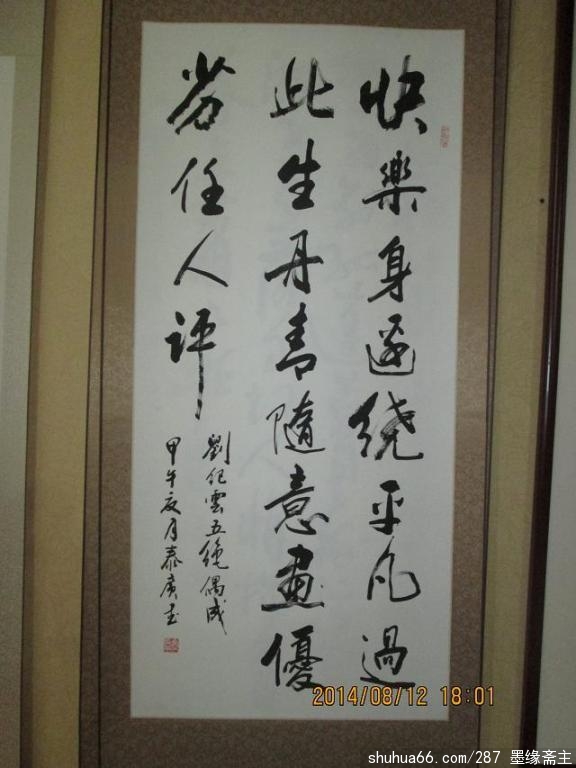 快樂身邊繞平凡過
此生丹青隨意畫優
劣任人評
劉紀雲五絶偶成
甲午夏月泰廣书
2014/08/12 18:01
shuhua66.com/287 墨缘斋主